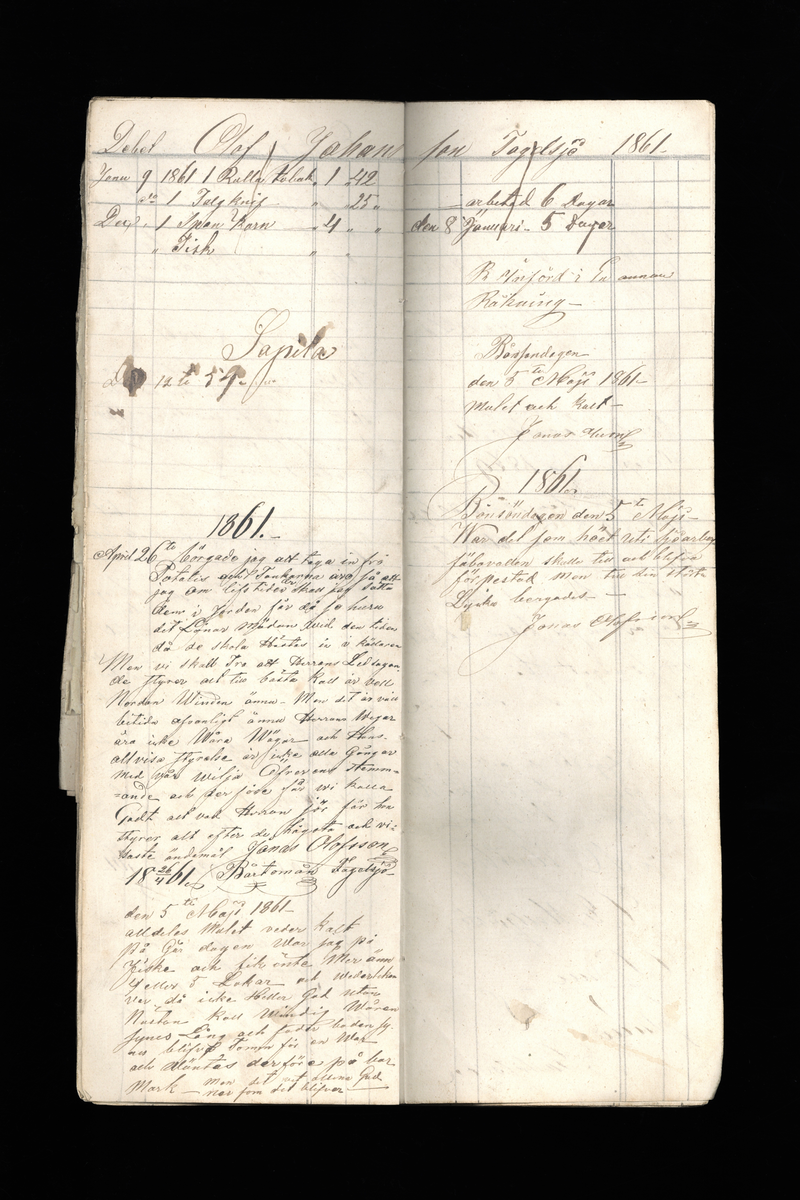 Debet Olof Johan son Tågelsjö 1861
Janu 9 1861 1 Rulla tobak 1 42
1 Talg knif " 25 "
1 Span Korn " 4 " "
" Fisk " "
Papila
12 te 54
1861.
April 26te börgade jag att taga in frö
Potatis och Tankarna äro så att
jag om lifstider skall jag sätta
dem i Jorden får då se huru
det Lönar Mödan wid den tiden
då de skola Hästas in i källaren
Men vi skall Tro att Herrans Ledsagan
de styrer alt till bästa Kall är vell
Nordan Winden ännu - Men det är väll
bitida ännu Herrans Wegar
äro icke Wåra Wägar och Hans
allvisa styrelse är icke alla Gånger
Med vår wilja Öfverens stemm=
=ande och der före får wi kalla
Godt alt vad Herran gör för han
styrer alt efter de högsta och vi=
saste ändamål Jonas Olofsson
18 26/4 61. Bärtomån Tågelsjö
den 5te Maji 1861
alldeles Mulet veder Kalt
på Går dagen War jag på
Fiske och fik inte Mer änn
4 eller 5 Lakar och Wederleken
var då icke Heller God utan
Nästan Kall Windig Wåren
synes Lång och foder boden
nu blifva Tomm för en War
och Wäntas derföre på bar
Mark - men det vet allena Gud
när som det blifver
arbetad 6 Dagar
den 8 Januari - 5 Dagar
R Införd i En annan
Räkning
Bönsöndagen
den 5te Maji 1861
Mulet och kalt
Jonas
1861.
Bönsöndagen den 5te Maji
War det som häst
fäbovallen skulle till och blifva
förpestad Men till din största
Lycka bergades
Jonas Olofsson